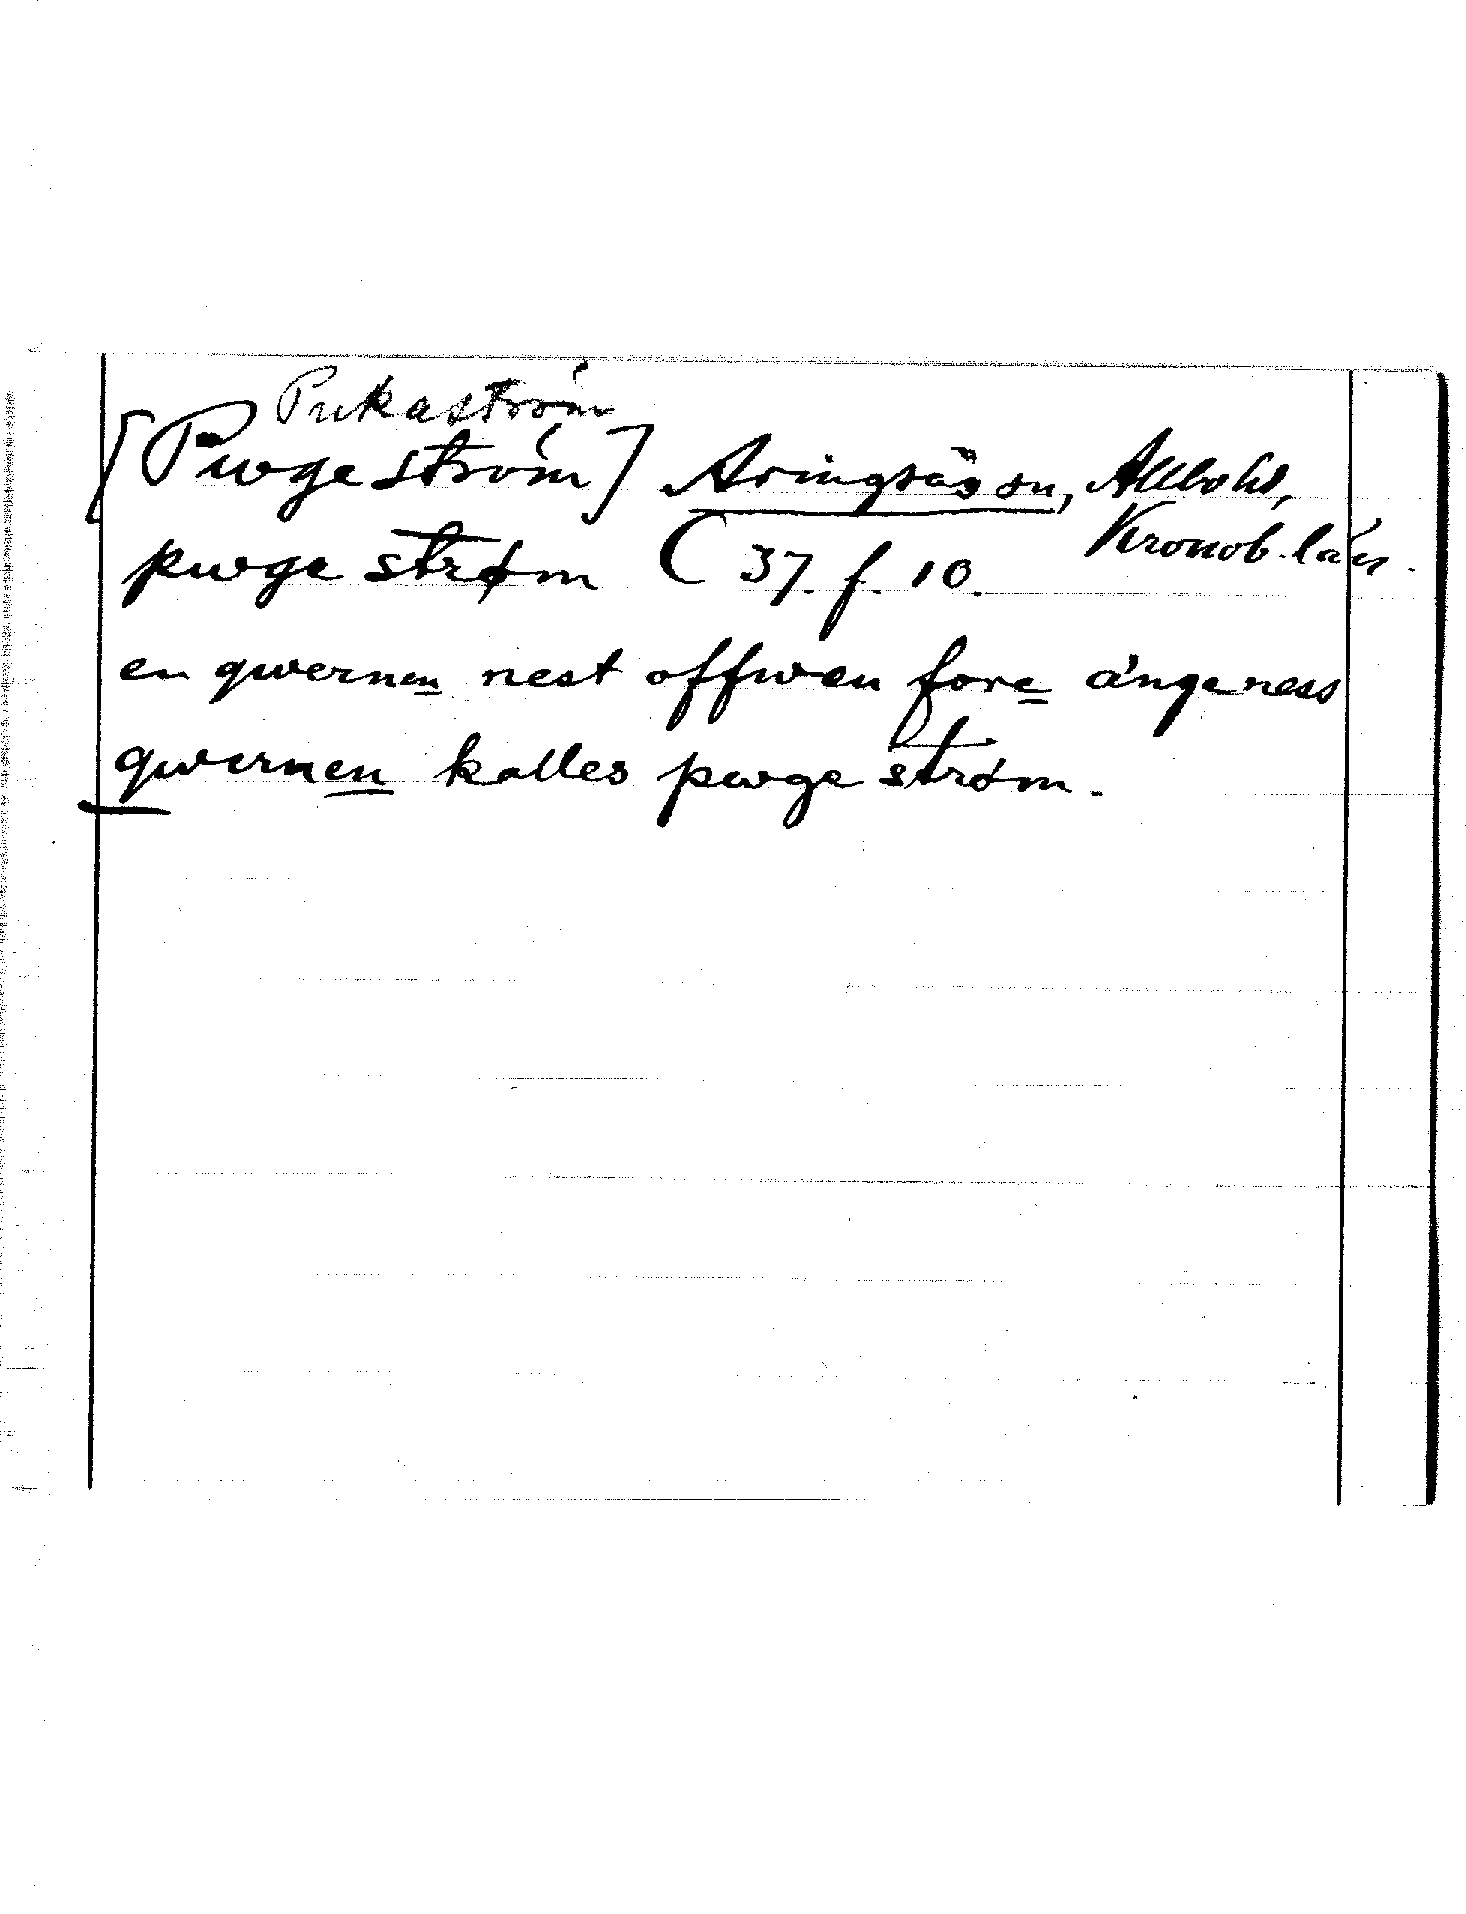 Pukaström
[Pwgeström] Aringsås sn, Allbohd,
Kronob. län.
pwge strøm C 37. f. 10.
en qwernen nest offwen fore ångeness
qwernen kalles pwge strøm.